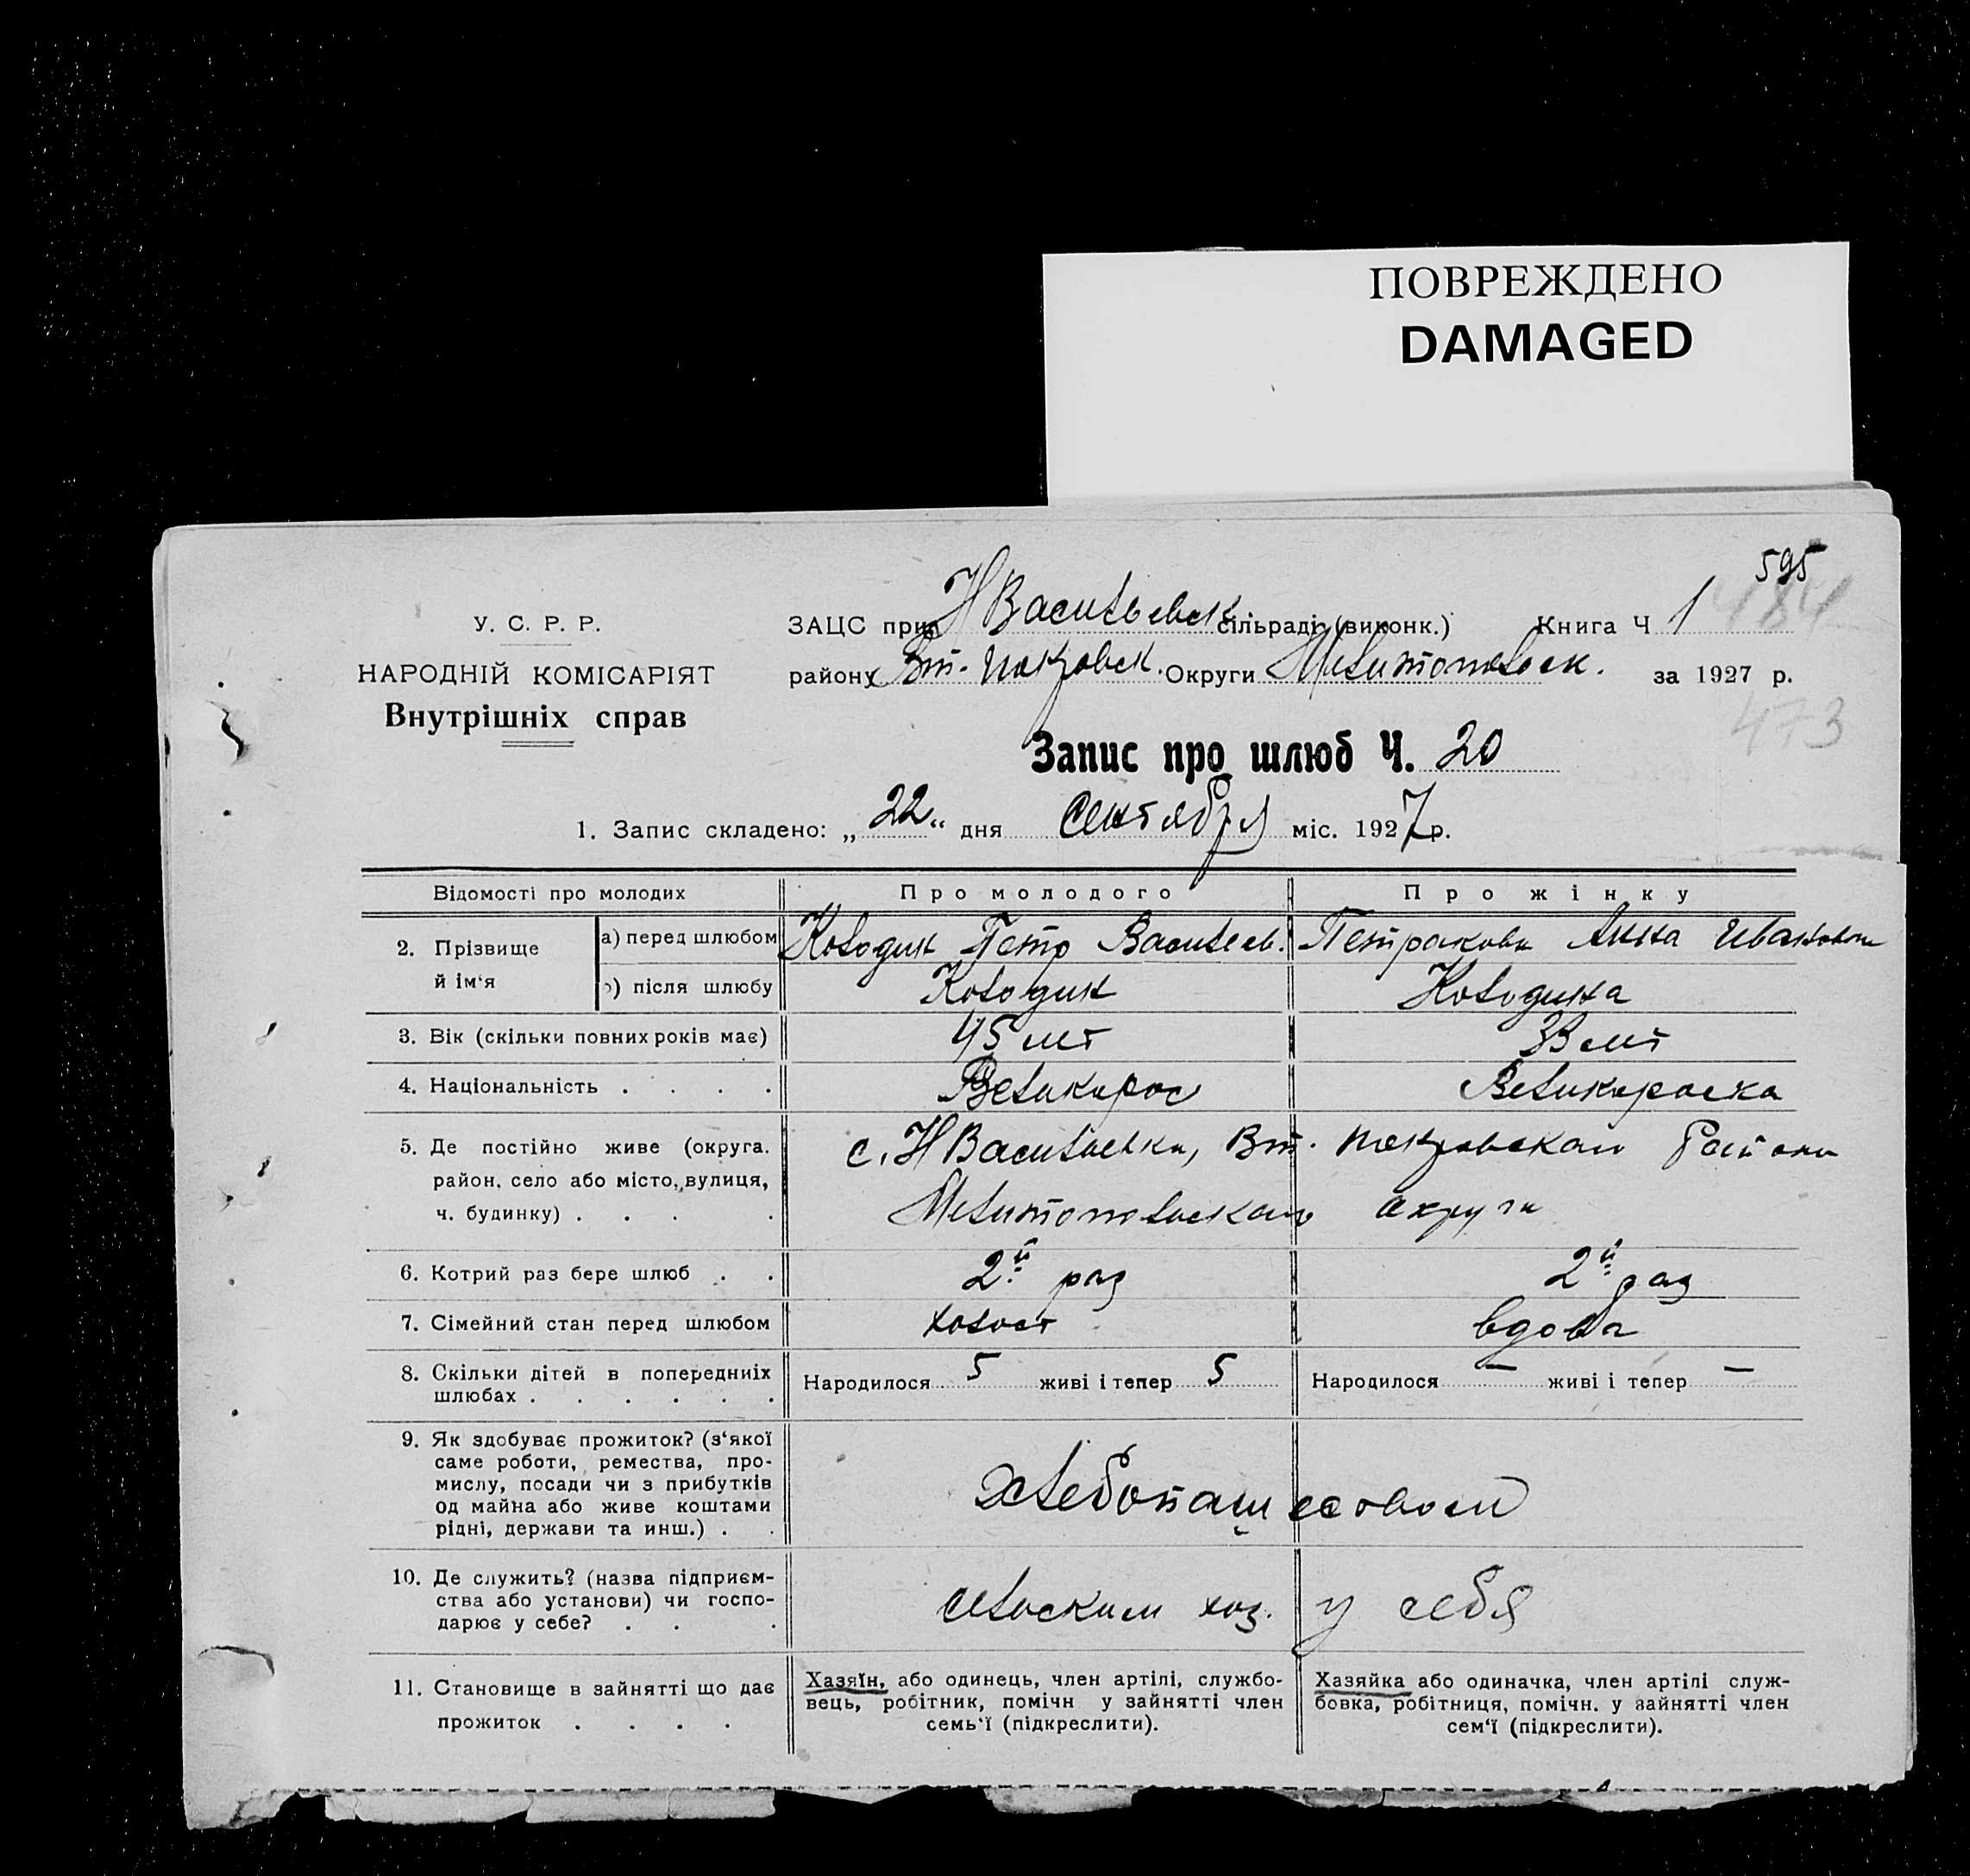 ПОВРЕЖДЕНО
DAMAGED
595
484
У. С. Р. Р.
НАРОДНІЙ КОМІСАРІЯТ
Внутрішніх справ
ЗАЦС при Н Васильевск сільраді (виконк.) Книга Ч 1
району Вт. Покровск. Округи Мелитопольск. за 1927 р.
473
Запис про шлюб Ч. 20
1. Запис складено: „22“ дня Сентября міс. 1927 р.
Відомості про молодих Про молодого Про жінку
2. Прізвище й ім‘я
а) перед шлюбом Колодин Петр Васильев. Петракова Анна Ивановна
б) після шлюбу Колодин Колодина
3. Вік (скільки повних років має) 45 лет 33 лет
4. Національність . . . . Великорос Великороска
5. Де постійно живе (округа. с. Н Васильевка, Вт. Покровского района
район, село або місто, вулиця, Мелитопольского округа
ч. будинку) . . . .
6. Котрий раз бере шлюб . . 2й раз 2й раз
7. Сімейний стан перед шлюбом холост вдова
8. Скільки дітей в попередниіх Народилося 5 живі і тепер 5 Народилося — живі і тепер —
шлюбах . . . . . .
9. Як здобуває прожиток? (з‘якої
саме роботи, ремества, про-
мислу, посади чи з прибутків хлебопашеством
од майна або живе коштами
рідні, держави та инш.) . .
10. Де служить? (назва підприєм-
ства або установи) чи госпо- сельским хоз. у себя
дарює у себе? . . .
11. Становище в зайнятті що дає
прожиток . . . .
Хазяїн, або одинець, член артілі, службо-
вець, робітник, помічн у зайнятті член
семь‘ї (підкреслити).
Хазяйка або одиначка, член артілі служ-
бовка, робітниця, помічн. у зайнятті член
сем‘ї (підкреслити).